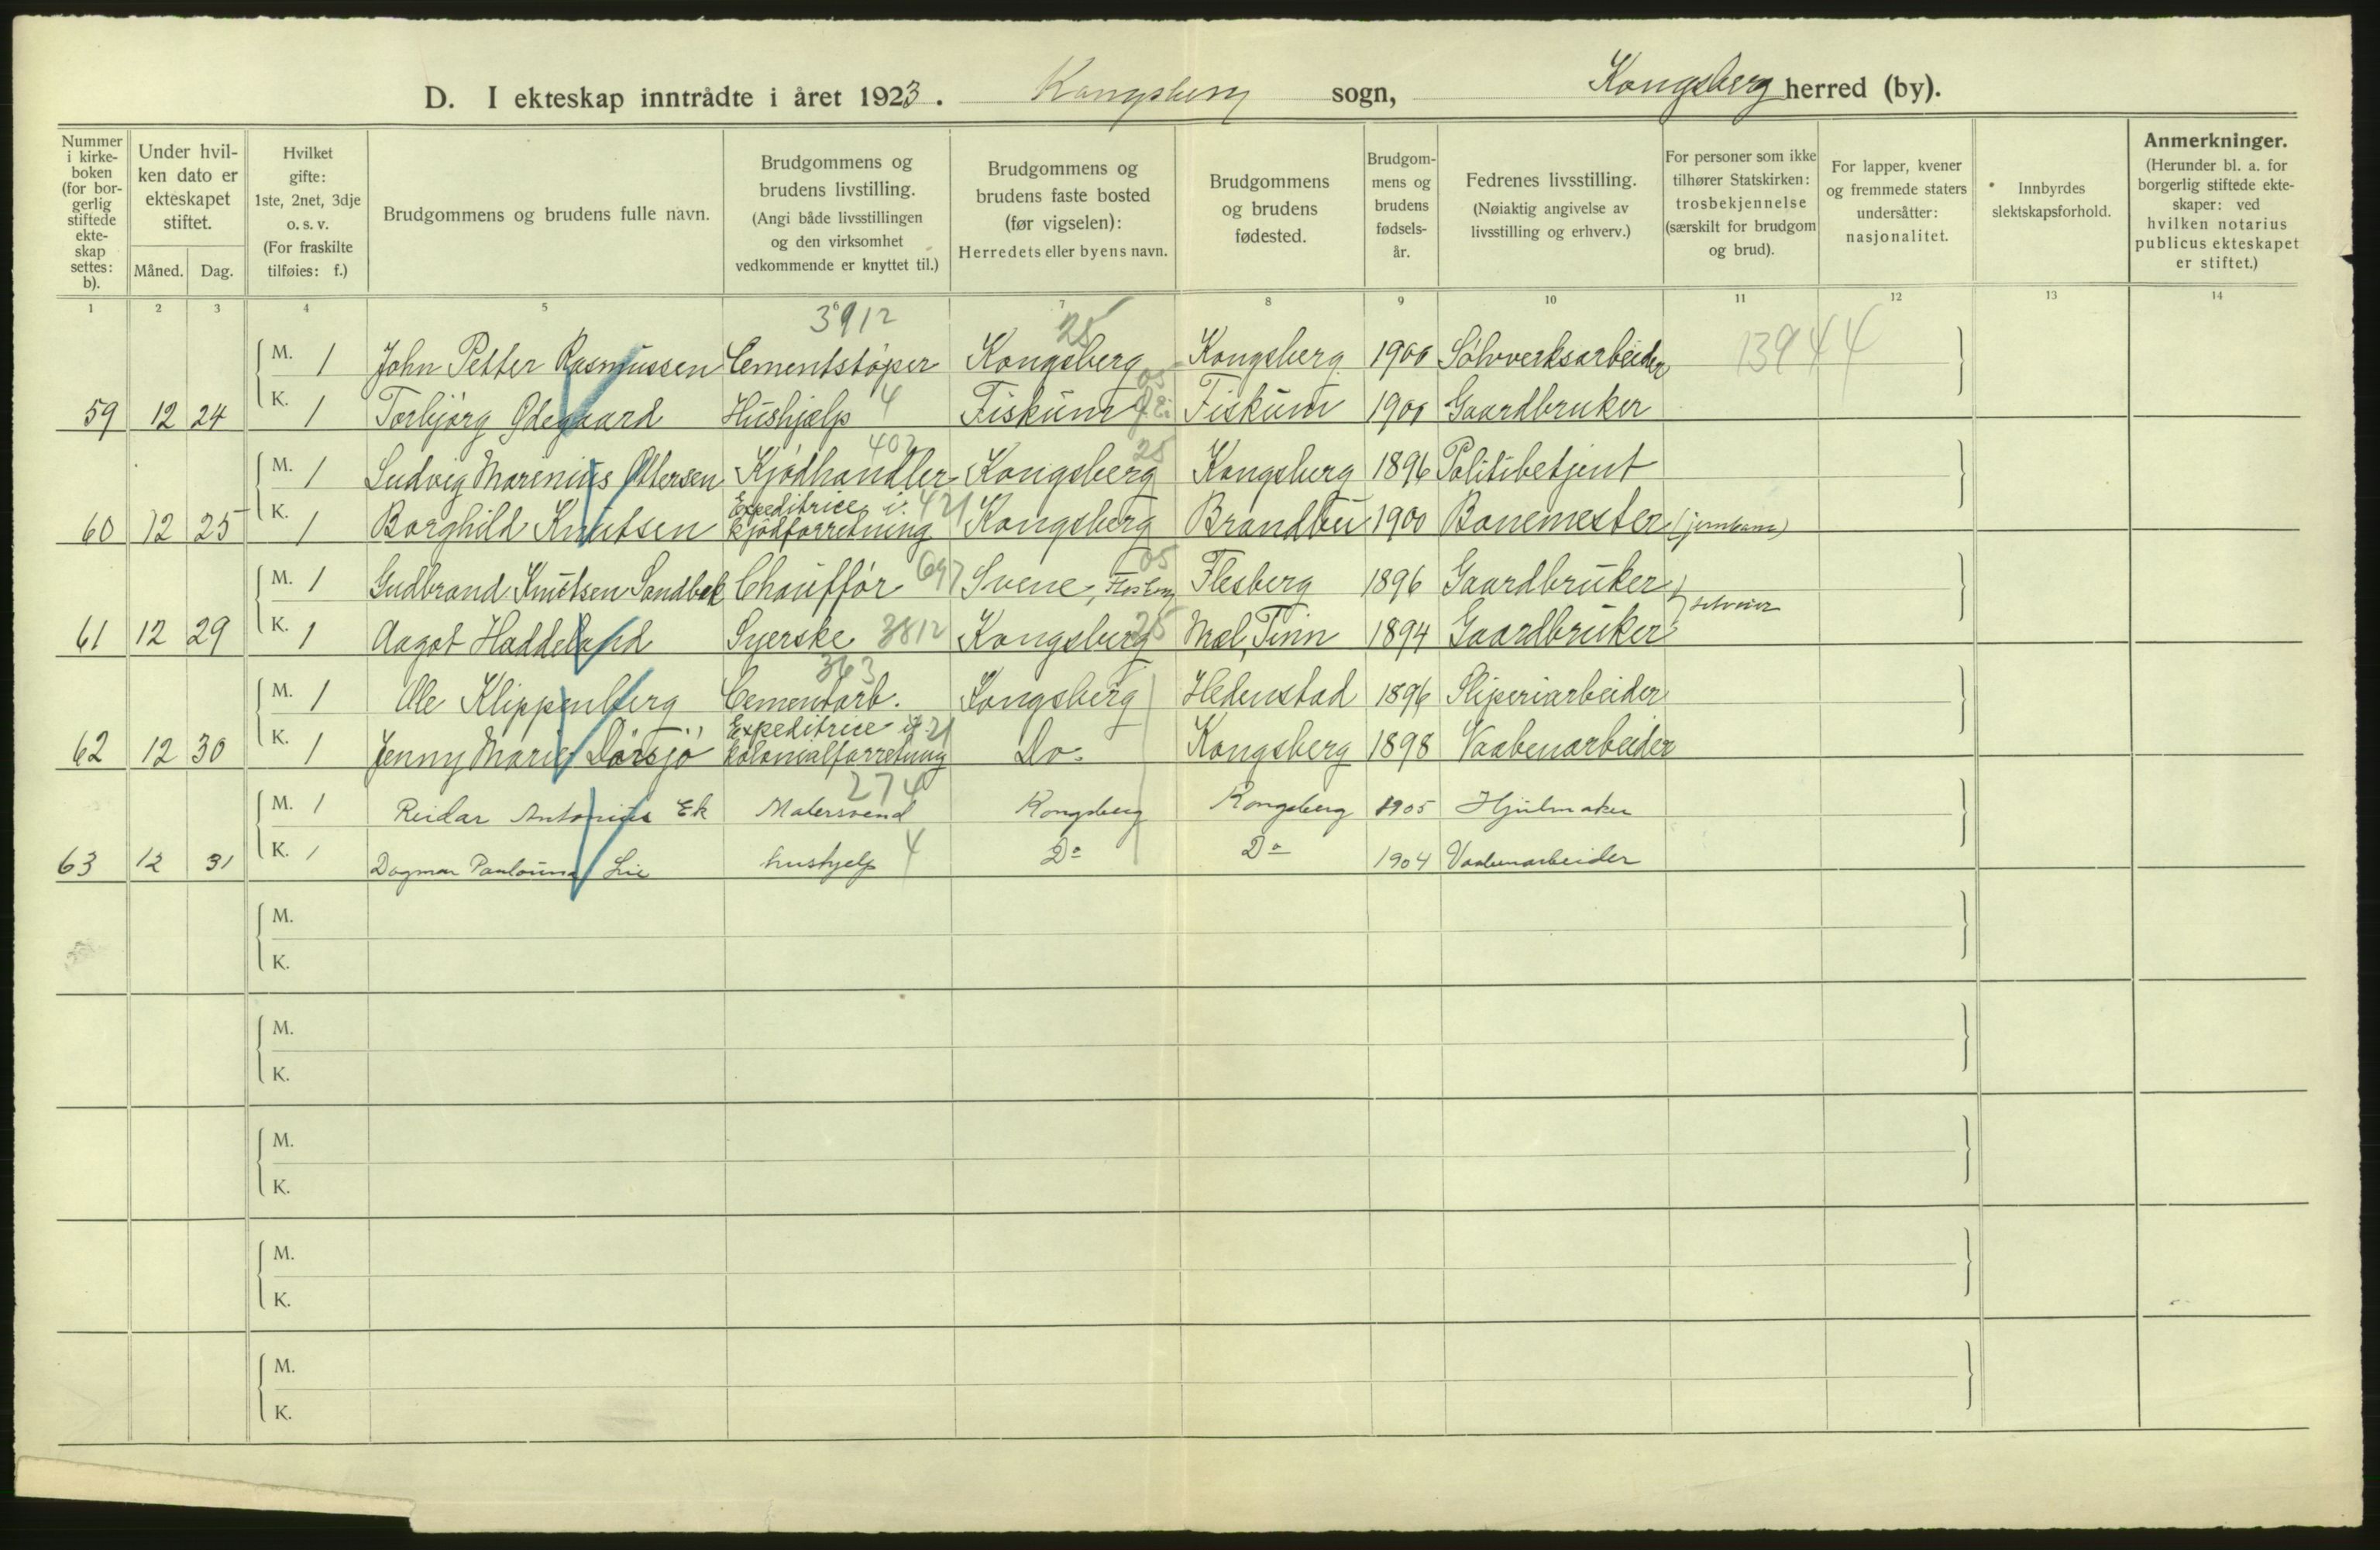 D. I ekteskap inntrådte i året 1923. Kongsberg sogn, Kongsberg herred (by).
Nummer i kirke-boken (for bor-gerlig stiftede ekte-skap settes: b).
Under hvil-ken dato er ekteskapet stiftet.
Måned. Dag.
Hvilket gifte: 1ste, 2net, 3dje o. s. v. (For fraskilte tilføies: f.)
Brudgommens og brudens fulle navn.
Brudgommens og brudens livstilling. (Angi både livsstillingen og den virksomhet vedkommende er knyttet til.)
Brudgommens og brudens faste bosted (før vigselen): Herredets eller byens navn.
Brudgommens og brudens fødested.
Brudgom-mens og brudens fødsels-år.
Fedrenes livsstilling. (Nøiaktig angivelse av livsstilling og erhverv.)
For personer som ikke tilhører Statskirken: trosbekjennelse (særskilt for brudgom og brud).
For lapper, kvener og fremmede staters undersåtter: nasjonalitet.
Innbyrdes slektskapsforhold.
Anmerkninger. (Herunder bl. a. for borgerlig stiftede ekte-skaper: ved hvilken notarius publicus ekteskapet er stiftet.)
1 2 3 4 5 6 7 8 9 10 11 12 13 14
3912 25
M. 1 John Petter Rasmussen Cementstøper Kongsberg Kongsberg 1900 Sølvverksarbeider 13944
59 12 24 K. 1 Torbjørg Ødegaard Hushjælp 4 Fiskum Fiskum 1900 Gaardbruker
402 25
M. 1 Ludvig Marenius Ottersen Kjødhandler Kongsberg Kongsberg 1896 Politibetjent
60 12 25 K. 1 Borghild Knutsen Expeditrice i 421 kjødforretning Kongsberg Brandbu 1900 Banemester (jernbane)
05
M. 1 Gudbrand Knutsen Sandbæk Chauffør 697 Svene, Flesberg Flesberg 1896 Gaardbruker } selveier
61 12 29 K. 1 Aagot Haddeland Syerske 3812 Kongsberg 25 Mæl, Tinn 1894 Gaardbruker
363
M. 1 Ole Klippenberg Cementarb. Kongsberg Hedenstad 1896 Sliperiarbeider
62 12 30 K. 1 Jenny Marie Dørsjø Expeditrice i kolonialforretning Do. Kongsberg 1898 Vaabenarbeider
274
M. 1 Reidar Antonius Ek Malersvend Kongsberg Kongsberg 1905 Hjulmaker
63 12 31 K. 1 Dagmar Paulouina Lie hushjelp 4 Do Do 1904 Vaabenarbeider
M.
K.
M.
K.
M.
K.
M.
K.
M.
K.